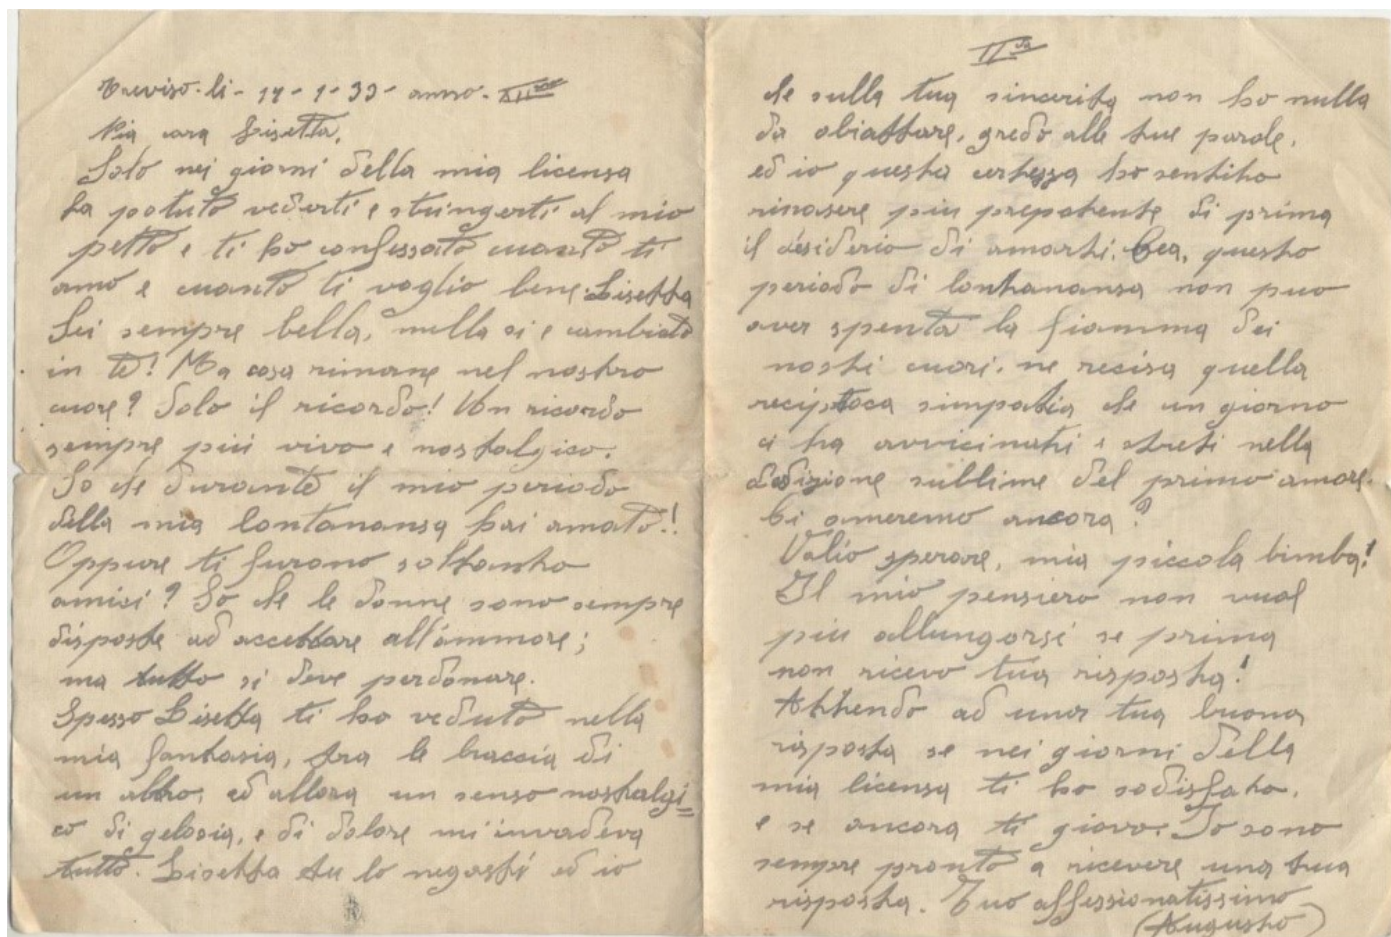 Treviso. li - 17 - 1 - 33 - anno - XI
Mia cara Lisetta,
Solo nei giorni della mia licensa
ho potuto vederti e stringerti al mio
petto e ti ho confessato cuanto ti
amo e cuanto ti voglio bene Lisetta
Sei sempre bella, nulla si e cambiato
in te! Ma cosa rimane nel nostro
cuore? Solo il ricordo! Un ricordo
sempre più vivo e nostalgico.
So che durante il mio periodo
della mia lontanansa hai amato!!
Oppure ti furono soltanto
amici? So che le donne sono sempre
disposte ad accettare all'ammore;
ma tutto si deve perdonare.
Spesso Lisetta ti ho veduto nella
mia fantasia, tra le braccia di
un altro, ed allora un senso nostalgi=
co di gelosia, e di dolore mi invadeva
tutto. Lisetta tu lo negasti ed io
II
che sulla tua sincerita non ho nulla
da obiattare, gredo alle tue parole,
ed io questa certezza ho sentito
rinasere piu prepotente di prima
il desiderio di amarti. Cea, questo
periodo di lontanansa non puo
aver spenta la fiamma dei
nosti cuori, ne recisa quella
reciproca simpatia che un giorno
ci ha avvicinati e streti nella
dedizione sublime del primo amore.
Ci ameremo ancora?
Valio sperare, mia piccola bimba!
Il mio pensiero non vual
piu allungarsi se prima
non ricevo tua risposta!
Attendo ad una tua buona
risposta se nei giorni della
mia licensa ti ho sodisfato,
e se ancora ti giovo. Io sono
sempre pronto a ricevere una tua
risposta. Tuo affessionatissimo
(Augusto)